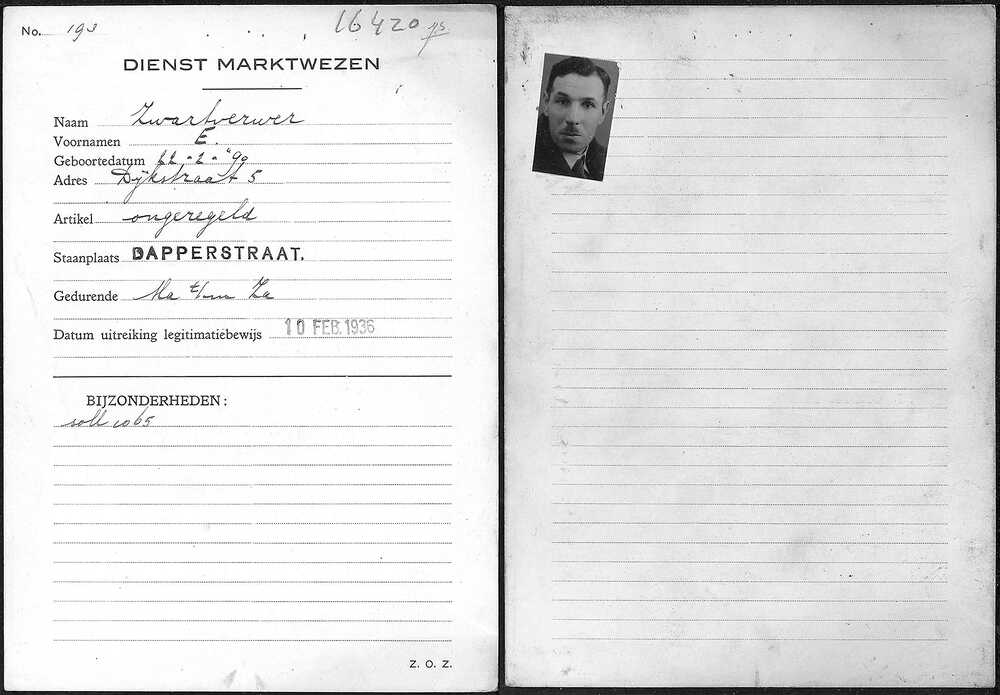 No. 193
16420
DIENST MARKTWEZEN
Naam Zwartverwer
Voornamen E.
Geboortedatum 22-2-'99
Adres Dijkstraat 5
Artikel ongeregeld
Staanplaats DAPPERSTRAAT.
Gedurende Ma t/m Za
Datum uitreiking legitimatiebewijs 10 FEB. 1936
BIJZONDERHEDEN:
soll 1065
Z. O. Z.